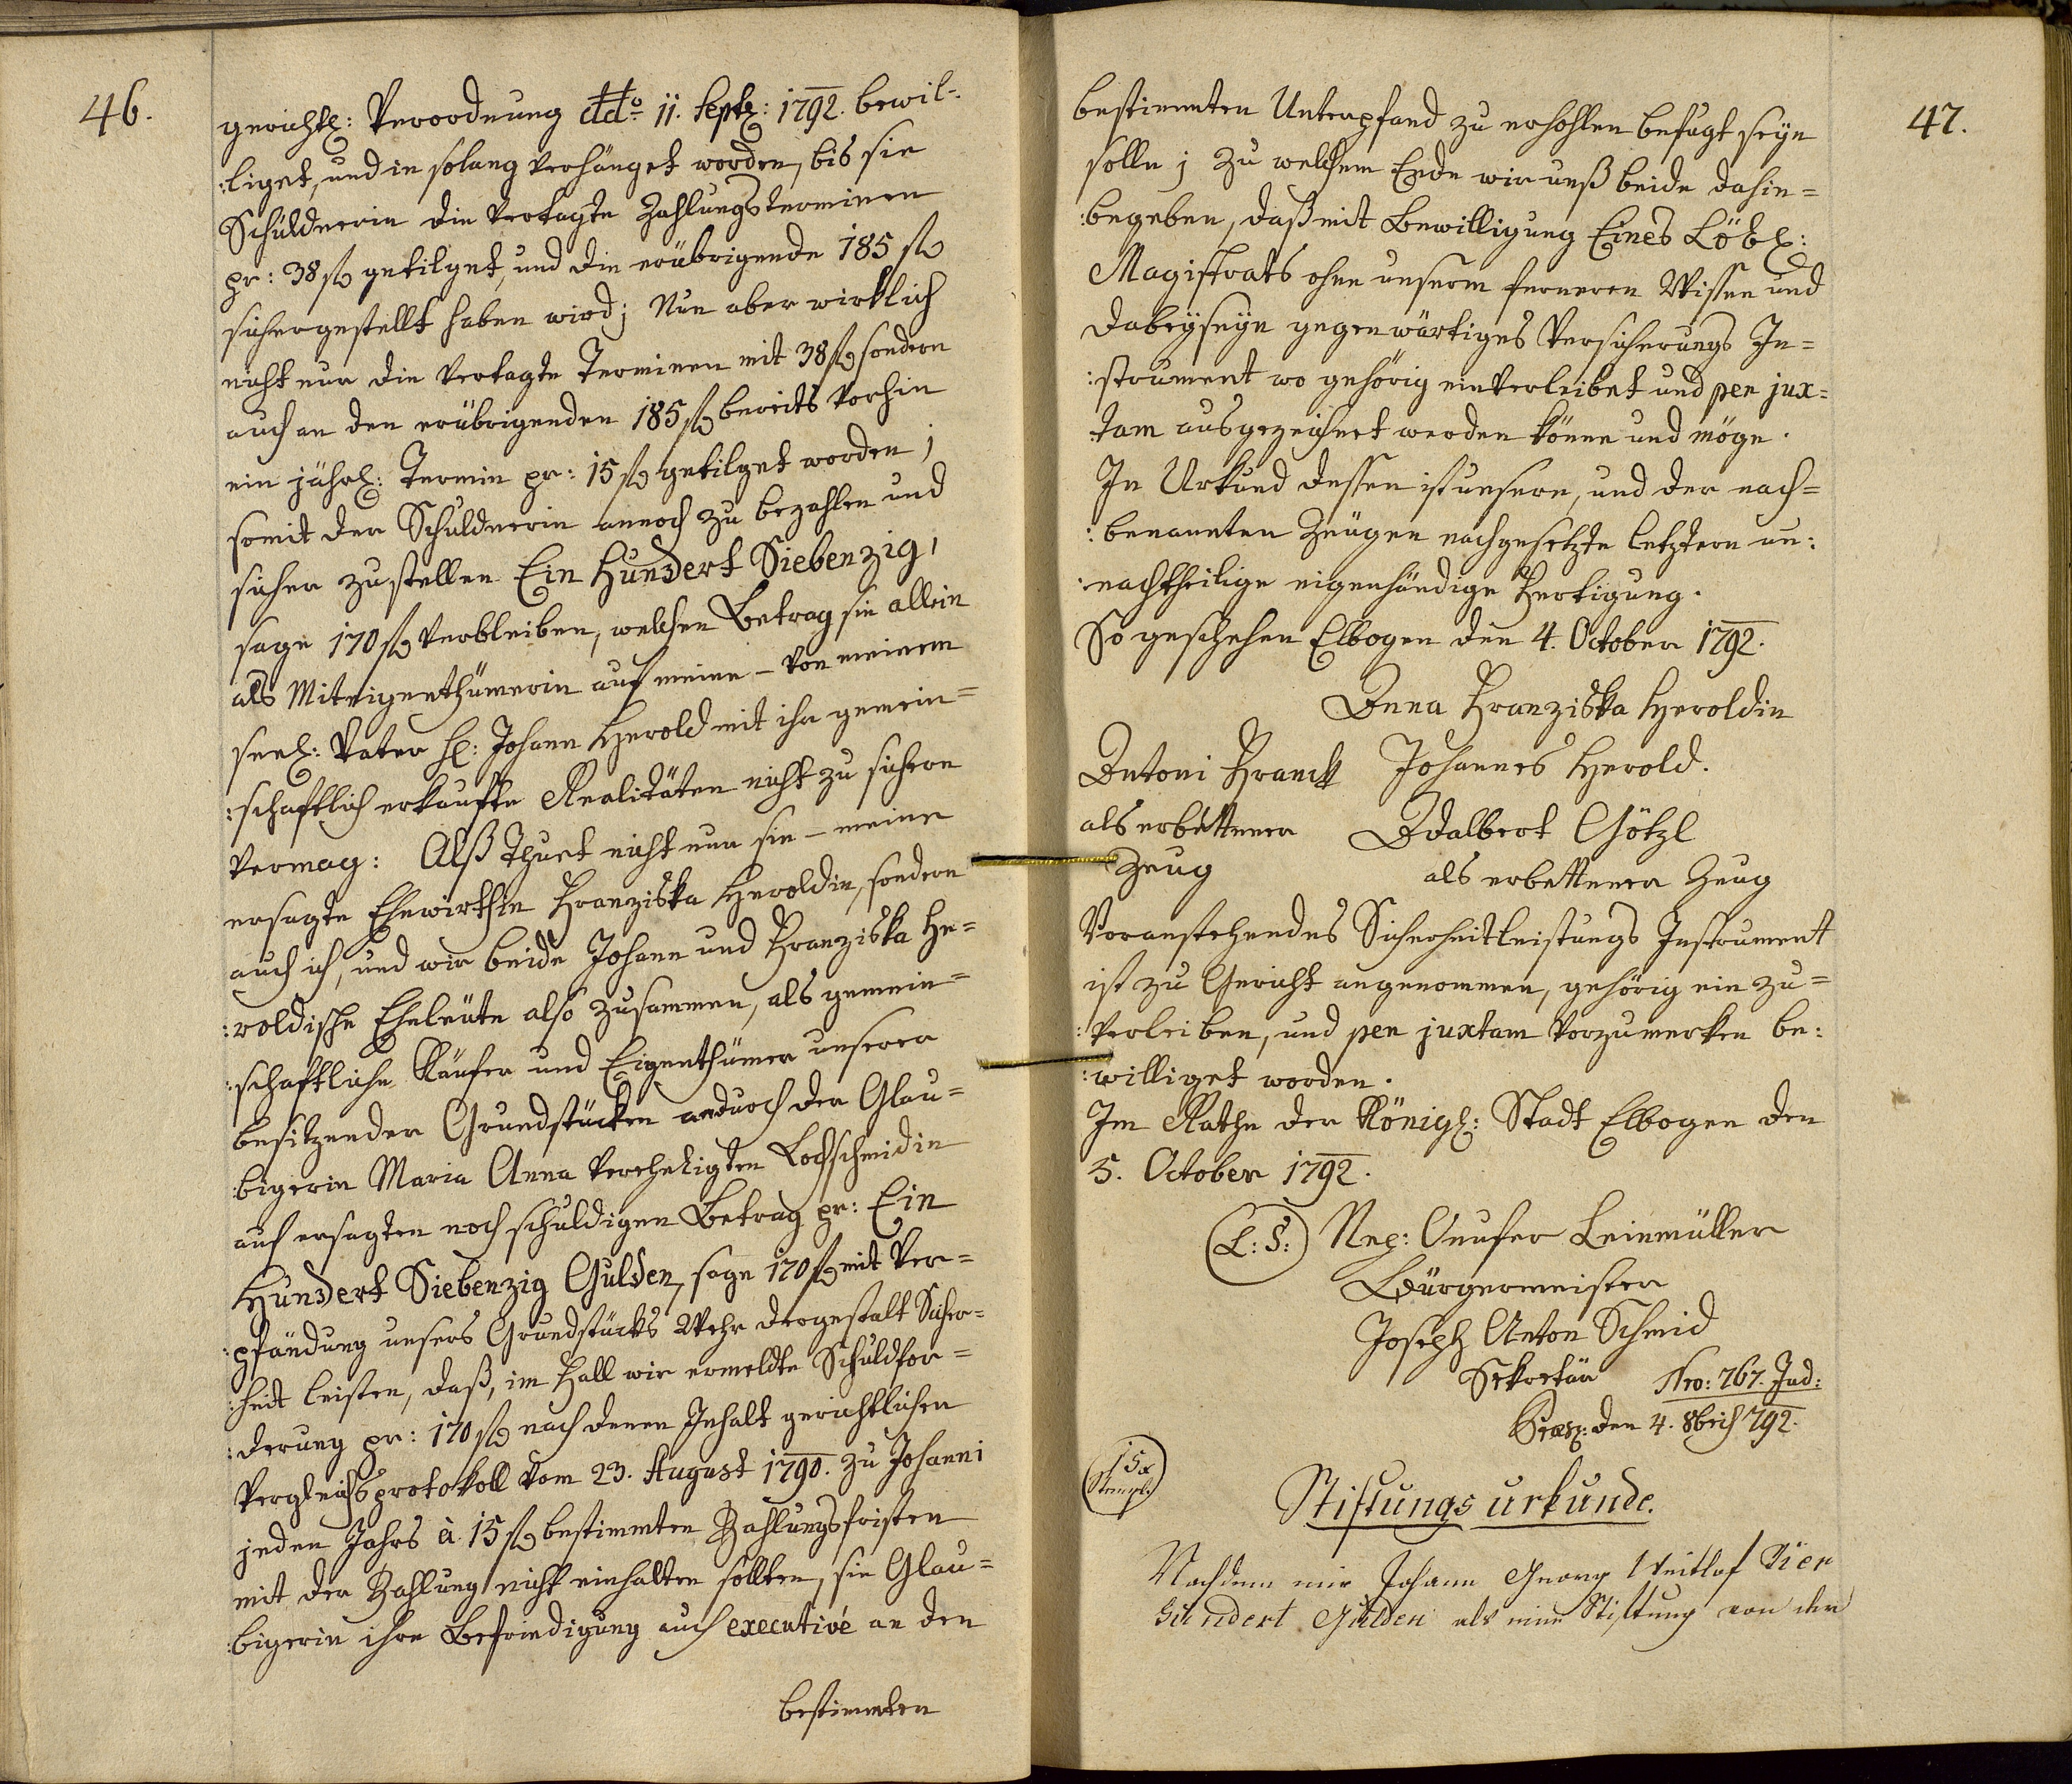 46.
gerichtl: Verordnung ddo 11. Septb: 1792. bewil-
:liget, und in solang verhänget worden, bis sie
Schuldnerin die vertagte Zahlungsterminen
pr: 38 fl getilget, und die erübrigende 185 fl
sichergestellt haben wird; Nun aber wirklich
nicht nur die vertagte Terminen mit 38 fl sondern
auch an den erübrigenden 185 fl bereits vorhin
ein jährl: Termin pr: 15 fl getilget worden;
somit der Schuldnerin annoch zu bezahlen und
sicher zustellen Ein Hundert Siebenzig,
sage 170 fl verbleiben, welchen Betrag sie allein
als Miteigenthümerin auf meine - von meinem
seel: Vater H: Johann Herold mit ihr gemein=
:schaftlich erkaufte Realitäten nicht zu sichern
vermag: Alß Thuet nicht nur sie - meine
ersagte Ehewirthin Franziska Heroldin, sondern
auch ich, und wir beide Johann und Franziska He=
:roldische Eheleute also zusammen, als gemein=
:schaftliche Käufer und Eigenthümer unserer
besitzender Grundstücken andurch der Glau=
:bigerin Maria Anna vereheligten Lochschmidin
auf ersagten noch schuldigen Betrag pr: Ein
Hundert Siebenzig Gulden, sage 170 fl mit Ver=
:pfändung unsers Grundstücks Wehr dergestalt Sicher=
:heit leisten, daß, im Fall wir ermeldte Schuldfor=
:derung pr: 170 fl nach denen Inhalt gerichtlichen
Vergleichsprotokoll vom 23. August 1790. zu Johanni
jeden Jahrs à 15 fl bestimmten Zahlungsfristen
mit der Zahlung nicht einhalten sollten, sie Glau=
:bigerin ihre Befriedigung auch executivé an den
bestimmten
47.
bestimmten Unterpfand zu erhohlen befugt seyn
solle; Zu welchem Ende wir unß beide dahin=
:begeben, daß mit Bewilligung Eines Löbl:
Magistrats ohne unserm ferneren Wissen und
dabeyseyn gegenwärtiges Versicherungs In=
:strument wo gehörig einverleibet und per jux=
:tam ausgezeichnet werden könne und möge.
In Urkund dessen ist unsere, und der nach=
:benannten Zeugen nachgesetzte letztern un:
:nachtheilige eigenhändige Fertigung.
So geschehen Elbogen den 4. October 1792.
Anna Franziska Heroldin
Antoni Franck Johannes Herold.
als erbettener Adalbert Götzl
Zeug als erbettener Zeug
Voranstehendes Sicherheitleistungs Instrument
ist zu Gericht angenommen, gehörig ein zu=
:verleiben, und per juxtam vorzumerken be:
:williget worden.
Im Rathe der Königl: Stadt Elbogen den
5. October 1792.
(L: S:) Nep: Onufer Leinmüller
Bürgermeister
Joseph Anton Schmid
Sekretär Nro: 767. Jud:
Præs: den 4. 8bris 792.
15 x
Stempl.
Stiftungs urkunde.
Nachdem mir Johann Georg Veitlof Vier
Hundert Gulden als eine Stiftung von der